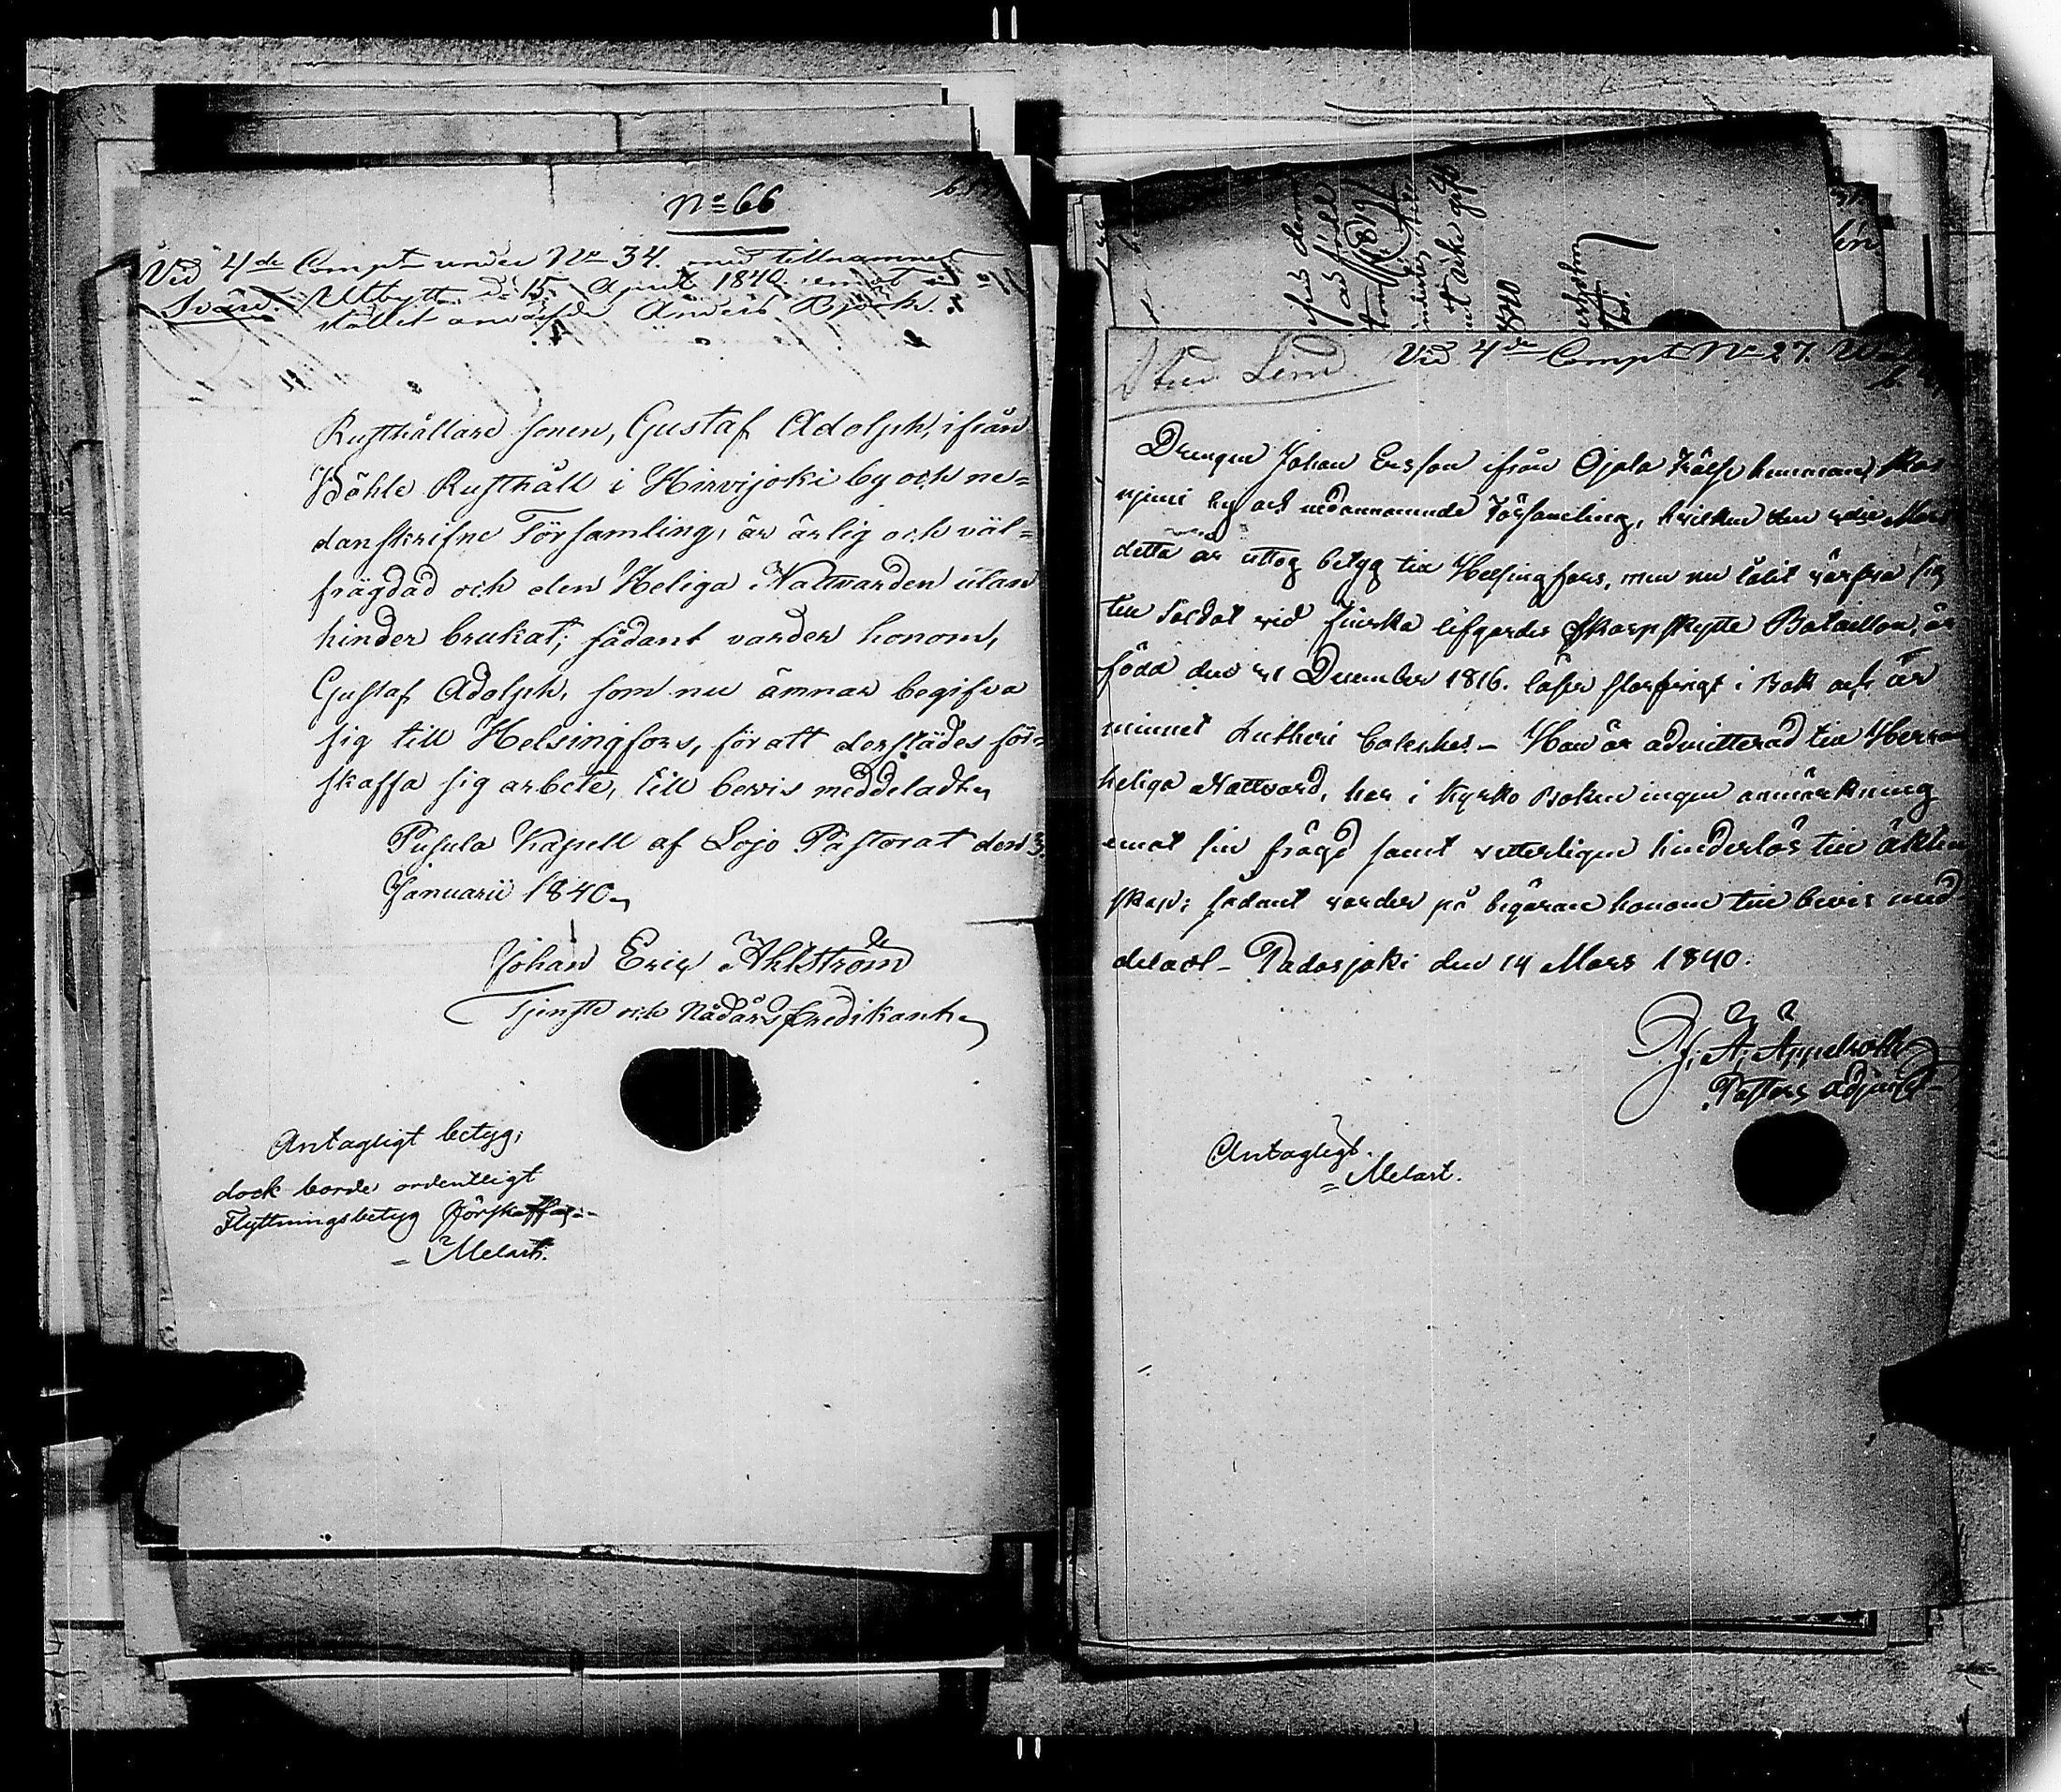 No 66
Vid 4de Compt under No 34. med tillnamnet
Svärd. Utbytt d: 15 April 1840. emot i
stället anvärfde Anders Björk.
Rusthållare sonen, Gustaf Adolph, ifrån
Böhle Rusthåll i Hirvijoki by och ne=
danskrifne Församling, är ärlig och väl=
frägdad och den Heliga Nattvarden utan
hinder brukat; sådant varder honom,
Gustaf Adolph, som nu ämnar begifva
sig till Helsingfors, för att derstädes för=
skaffa sig arbete, till bevis meddeladt
Pusula Kapell af Lojo Pastorat den 3.
Januarii 1840
Johan Eric Ahlström
Tjenste och Nådårs predikant
Antagligt betyg;
dock borde ordentligt
Flyttningsbetyg förskaffas.
= Melart.
1819
1840
Lind. Vid 4de Compt No 27.
Drengen Johan Ersson ifrån Ojala Frälse hemman,
by och nedannämnde Församling, hvilken den
detta år uttog betyg till Helsingfors, men nu låtit värfva sig
till Soldat vid Finska lifgardes Skarpskytte Bataillon, är
född den 21 December 1816. läser försvarligt i Bok och ur
minnet Lutheri Cateches. - Han är admitterad till Herrans
heliga Nattvard, har i Kyrko Boken ingen anmärkning
emot sin frägd samt vetterligen hinderlös till äkten
skap; sådant varder på begäran honom till bevis med
deladt - Padasjoki den 14 Mars 1840.
J. A. Appelroth
Pastors adjunct
Antagligt.
= Melart.